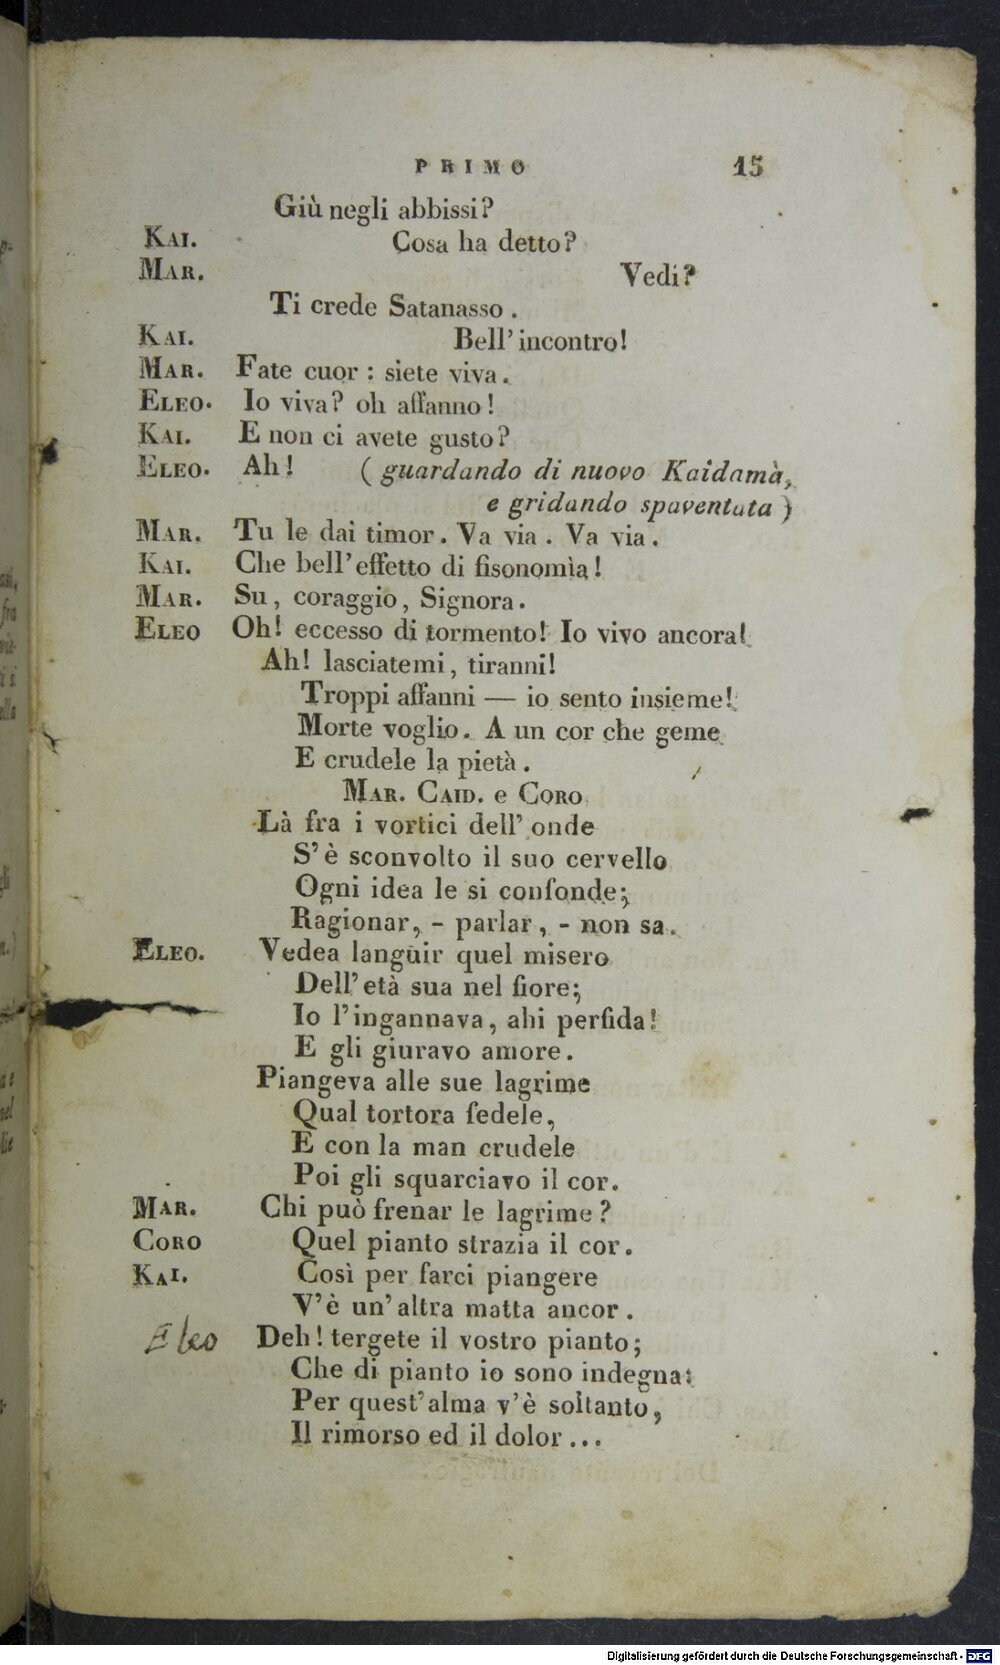 PRIMO 15
Giù negli abbissi?
KAI. Cosa ha detto?
MAR. Vedi?
Ti crede Satanasso.
KAI. Bell' incontro!
MAR. Fate cuor : siete viva.
ELEO. Io viva? oh affanno!
KAI. E non ci avete gusto?
ELEO. Ah! (guardando di nuovo Kaidamà,
e gridando spaventata)
MAR. Tu le dai timor. Va via. Va via.
KAI. Che bell' effetto di fisonomìa!
MAR. Su, coraggio, Signora.
ELEO Oh! eccesso di tormento! Io vivo ancora!
Ah! lasciatemi, tiranni!
Troppi affanni — io sento insieme!
Morte voglio. A un cor che geme
E crudele la pietà.
MAR. CAID. e CORO
Là fra i vortici dell' onde
S' è sconvolto il suo cervello
Ogni idea le si confonde;
Ragionar, - parlar, - non sa.
ELEO. Vedea languir quel misero
Dell' età sua nel fiore;
Io l'ingannava, ahi perfida!
E gli giuravo amore.
Piangeva alle sue lagrime
Qual tortora fedele,
E con la man crudele
Poi gli squarciavo il cor.
MAR. Chi può frenar le lagrime?
CORO Quel pianto strazia il cor.
KAI. Così per farci piangere
V'è un' altra matta ancor.
Eleo Deh! tergete il vostro pianto;
Che di pianto io sono indegna:
Per quest' alma v'è soltanto,
Il rimorso ed il dolor...
Digitalisierung gefördert durch die Deutsche Forschungsgemeinschaft - DFG